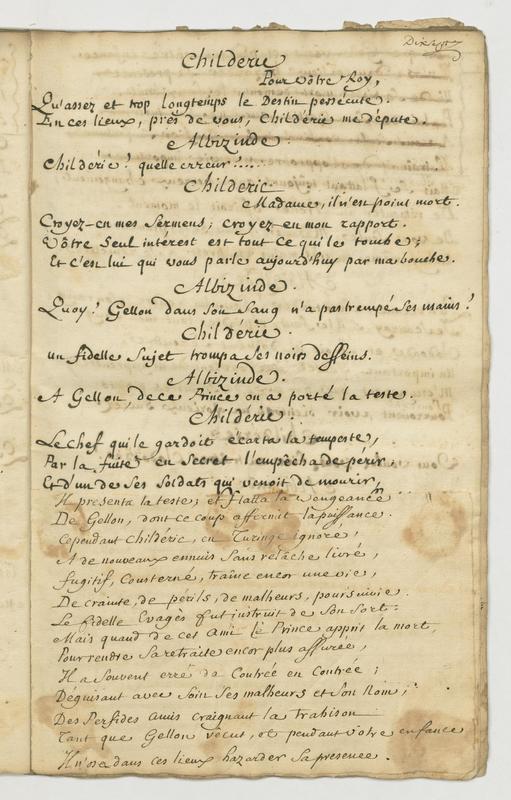 Childeric
Pour vôtre Roy,
Qu'assez et trop longtemps le Destin persécute.
En ces lieux, près de vous, Childéric me députe.
Albizinde.
Childéric! quelle erreur!....
Childeric
Madame, il n'est point mort.
Croyez-en mes Sermens; croyez-en mon rapport.
Vôtre Seul interest est tout ce qui le touche;
Et c'est lui qui vous parle aujourd'huy par ma bouche.
Albizinde.
Quoy! Gellon dans son Sang n'a pas trempé ses mains!
Childéric.
un fidelle Sujet trompa ses noirs desseins.
Albizinde.
A Gellon de ce Prince on a porté la teste.
Childeric.
Le chef qui le gardoit écarta la tempeste,
Par la fuite en Secret l'empêcha de perir,
Et d'un de ses Soldats qui venoit de mourir,
Il presenta la teste; et flatta la vengeance
De Gellon, dont ce coup affermit la puissance.
Cependant Childeric, en Turinge ignoré,
A de nouveaux ennuis Sans relâche livré,
fugitif, Consterné, traîne encor une vie,
De crainte, de périls, de malheurs, poursuivie.
Le fidelle Evagès fut instruit de Son Sort:
Mais quand de cet ami le Prince apprit la mort,
Pour rendre Sa retraite encor plus assurée,
Il a Souvent erré de Contrée en Contrée;
Déguisant avec Soin Ses malheurs et Son Nom;
Des Perfides amis craignant la trahison
Tant que Gellon vécut, et pendant vôtre enfance
Il n'osa dans ces lieux hazarder Sa presence.